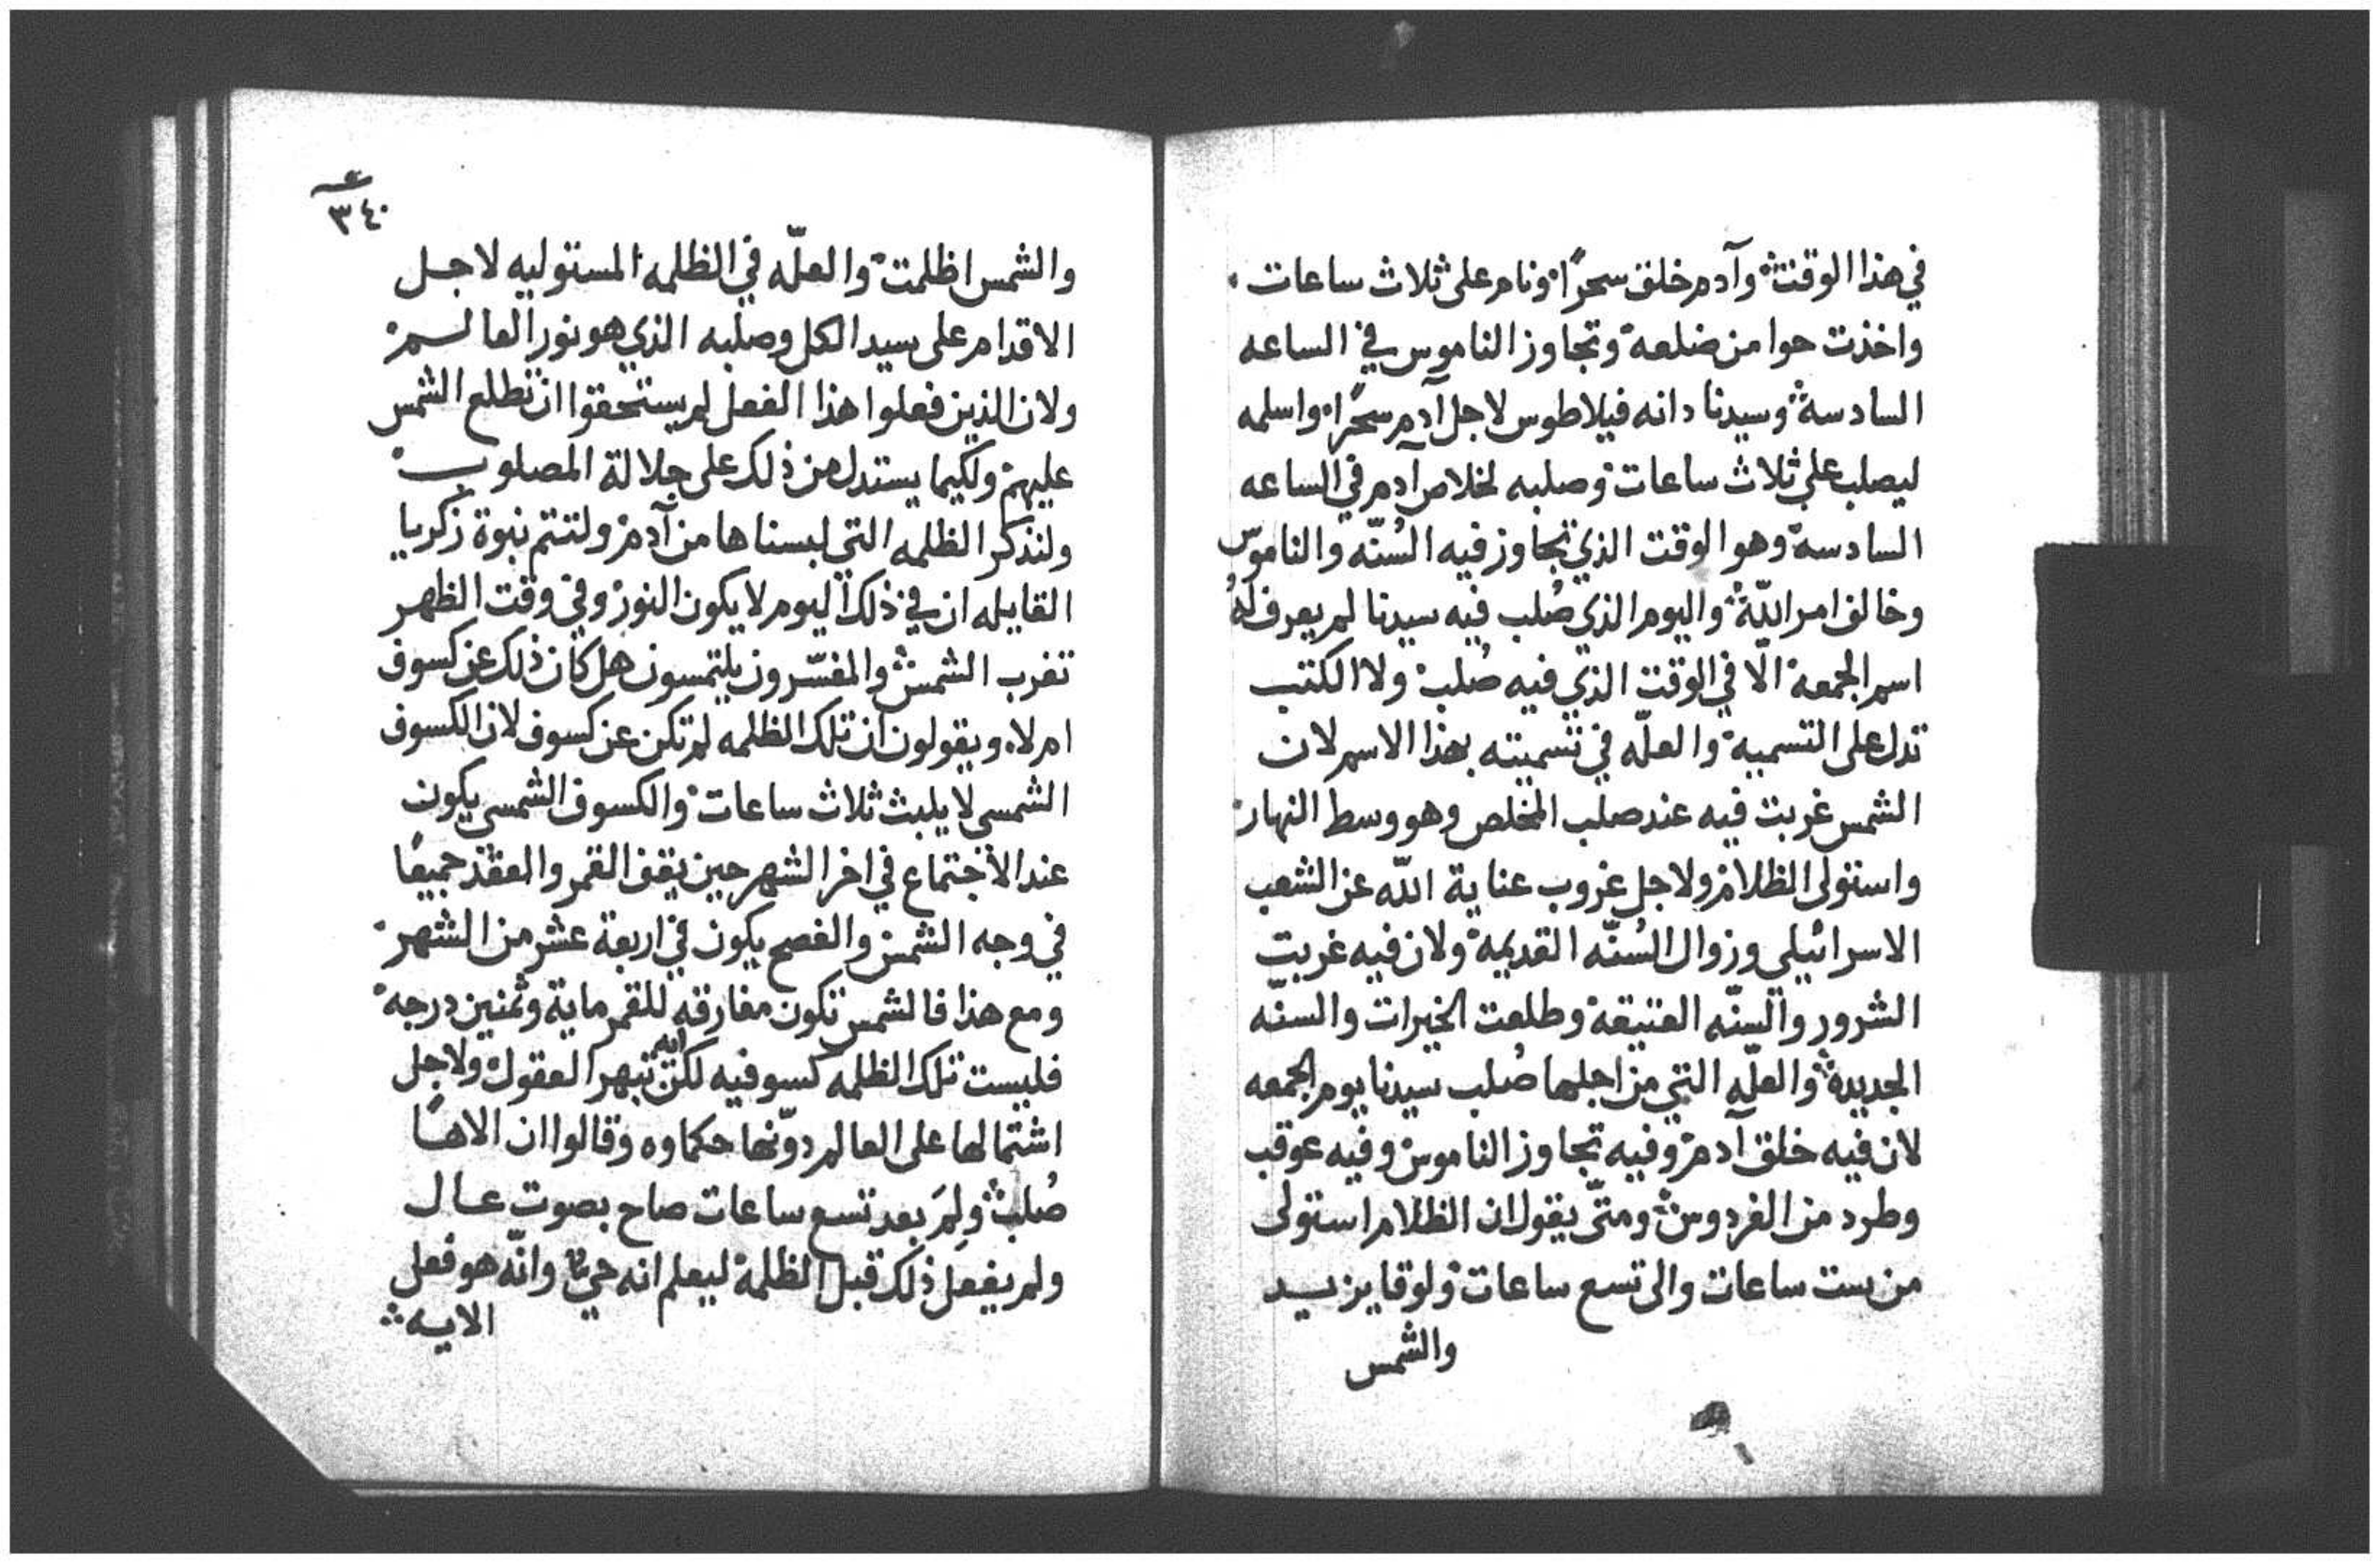 في هذا الوقت وآدم خلق سحرًا ونام على ثلاث ساعات
واخذت حوا من ضلعه وتجاوز الناموس في الساعه
السادسة وسيدنا دانه فيلاطوس لاجل آدم سحرًا واسلمه
ليصلب على ثلاث ساعات وصلبه لخلاص آدم في الساعه
السادسة وهو الوقت الذي تجاوز فيه السُنّه والناموس
وخالف امر اللّه واليوم الذي صُلب فيه سيدنا لم يعرف لهُ
اسم الجمعة الّا في الوقت الذي فيه صُلب ولا الكتب
تدل على التسمية والعلّه في تسميته بهذا الاسم لان
الشمس غربت فيه عند صلب المخلص وهو وسط النهار
واستولى الظلام ولاجل غروب عناية اللّه عن الشعب
الاسرائيلي وزوال السُنّه القديمة ولان فيه غربت
الشرور والسنّه العتيقة وطلعت الخيرات والسنّه
الجديدة والعلّه التي من اجلها صُلب سيدنا يوم الجمعه
لان فيه خلق آدم وفيه تجاوز الناموس وفيه عوقب
وطرد من الفردوس ومتّى يقول ان الظلام استولى
من ست ساعات والى تسع ساعات ولوقا يزيد
والشمس
٣٤٠
والشمس اظلمت والعلّه في الظلمه المستوليه لاجل
الاقدام على سيد الكل وصلبه الذي هو نور العالم
ولان الذين فعلوا هذا الفعل لم يستحقوا ان تطلع الشمس
عليهم ولكيما يستدل من ذلك على جلالة المصلوب
ولنذكر الظلمه التي لبسناها من آدم ولتتم نبوة زكريا
القايله ان في ذلك اليوم لا يكون النور وفي وقت الظهر
تغرب الشمس والمفسّرون يلتمسون هل كان ذلك عن كسوف
ام لا ويقولون ان تلك الظلمه لم تكن عن كسوف لان الكسوف
الشمسي لا يلبث ثلاث ساعات والكسوف الشمسي يكون
عند الاجتماع في اخر الشهر حين يقف القمر والعقد جميعًا
في وجه الشمس والفصح يكون في اربعة عشر من الشهر
ومع هذا فالشمس تكون مفارقه للقمر ماية وثمنين درجه
فليست تلك الظلمه كسوفيه لكن ايه تبهر العقول ولاجل
اشتمالها على العالم دوّنها حكماوه وقالوا ان الاهًا
صُلب ولِمَ بعد تسع ساعات صاح بصوت عال
ولم يفعل ذلك قبل الظلمة ليعلم انه حي وانّه هو فعل
الايه